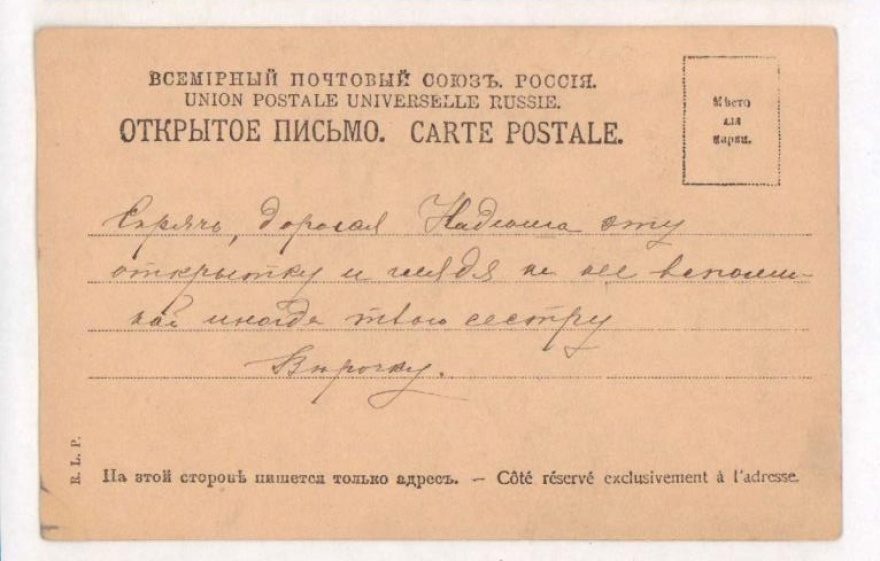 ВСЕМІРНЫЙ ПОЧТОВЫЙ СОЮЗЪ. РОССІЯ.
UNION POSTALE UNIVERSELLE RUSSIE.
ОТКРЫТОЕ ПИСЬМО. CARTE POSTALE.
Мѣсто
для
марки.
дорогая Надюша эту
открытку и глядя на нее вспоми-
най иногда твою сестру
R. L. P.
На этой сторонѣ пишется только адресъ. — Côté réservé exclusivement à l'adresse.